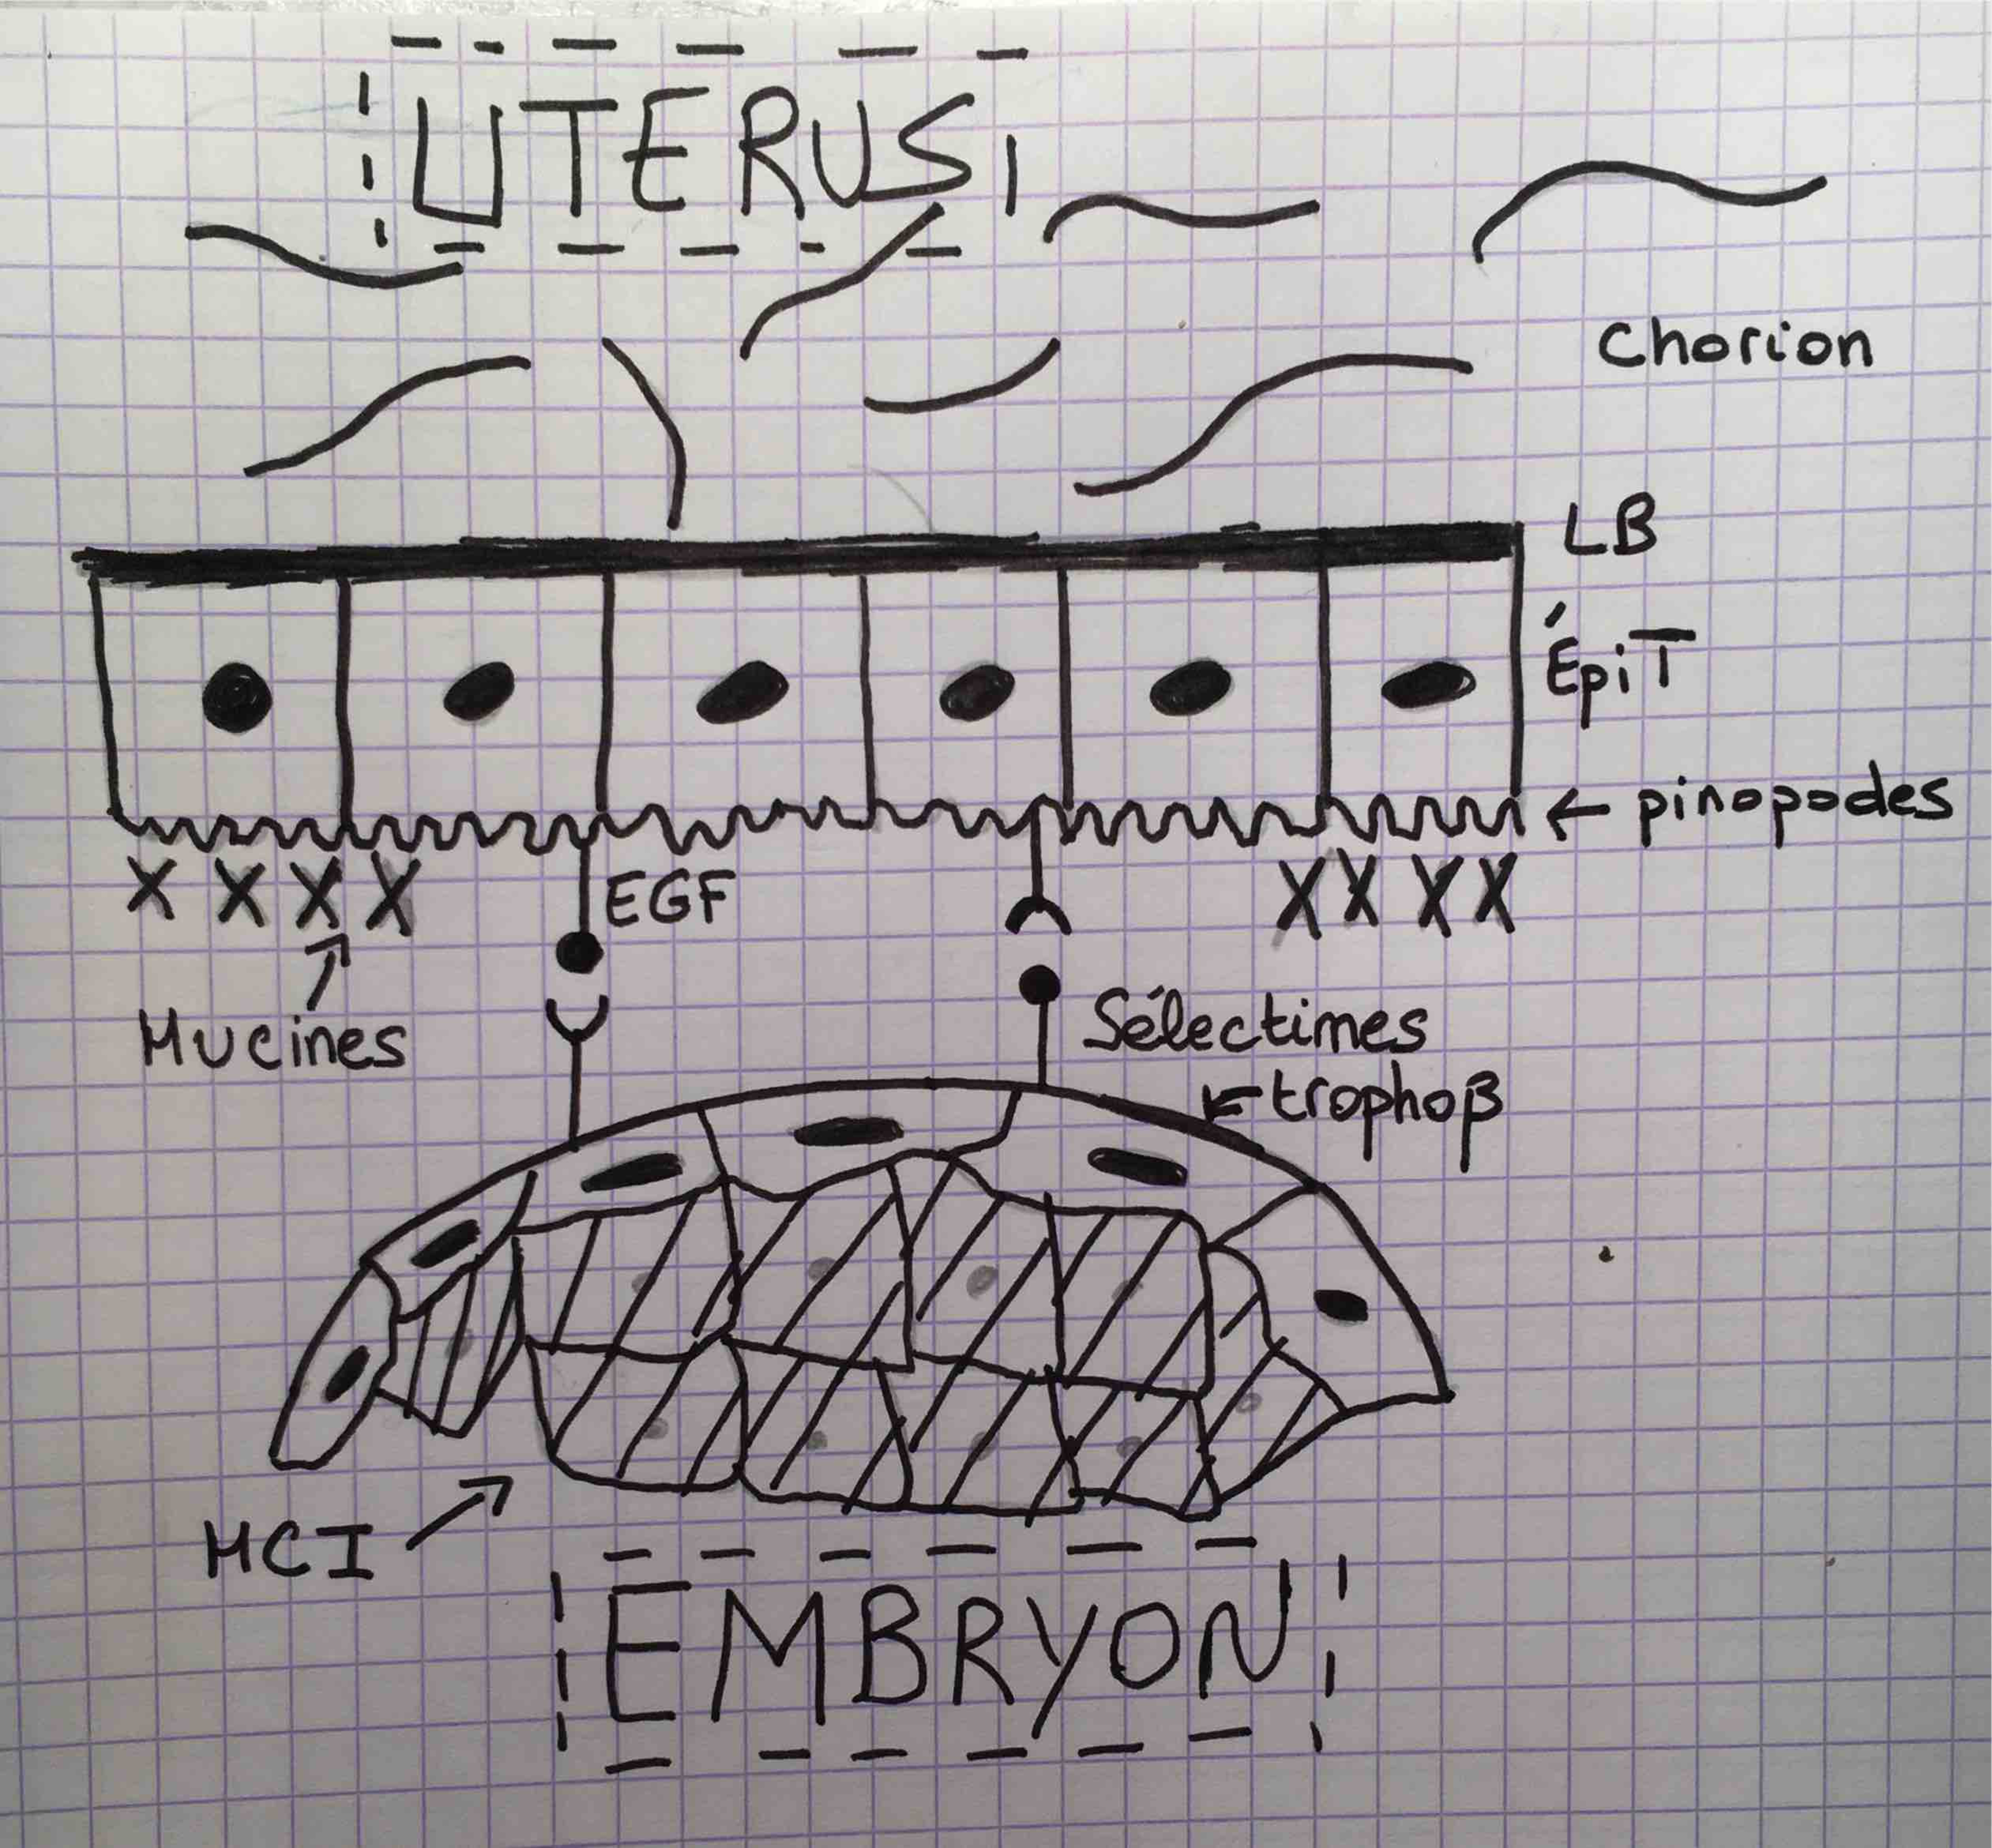 UTERUS
Chorion
LB
ÉpiT
← pinopodes
X X X X
EGF
XX XX
Mucines
Sélectimes
← trophoβ
MCI
EMBRYON